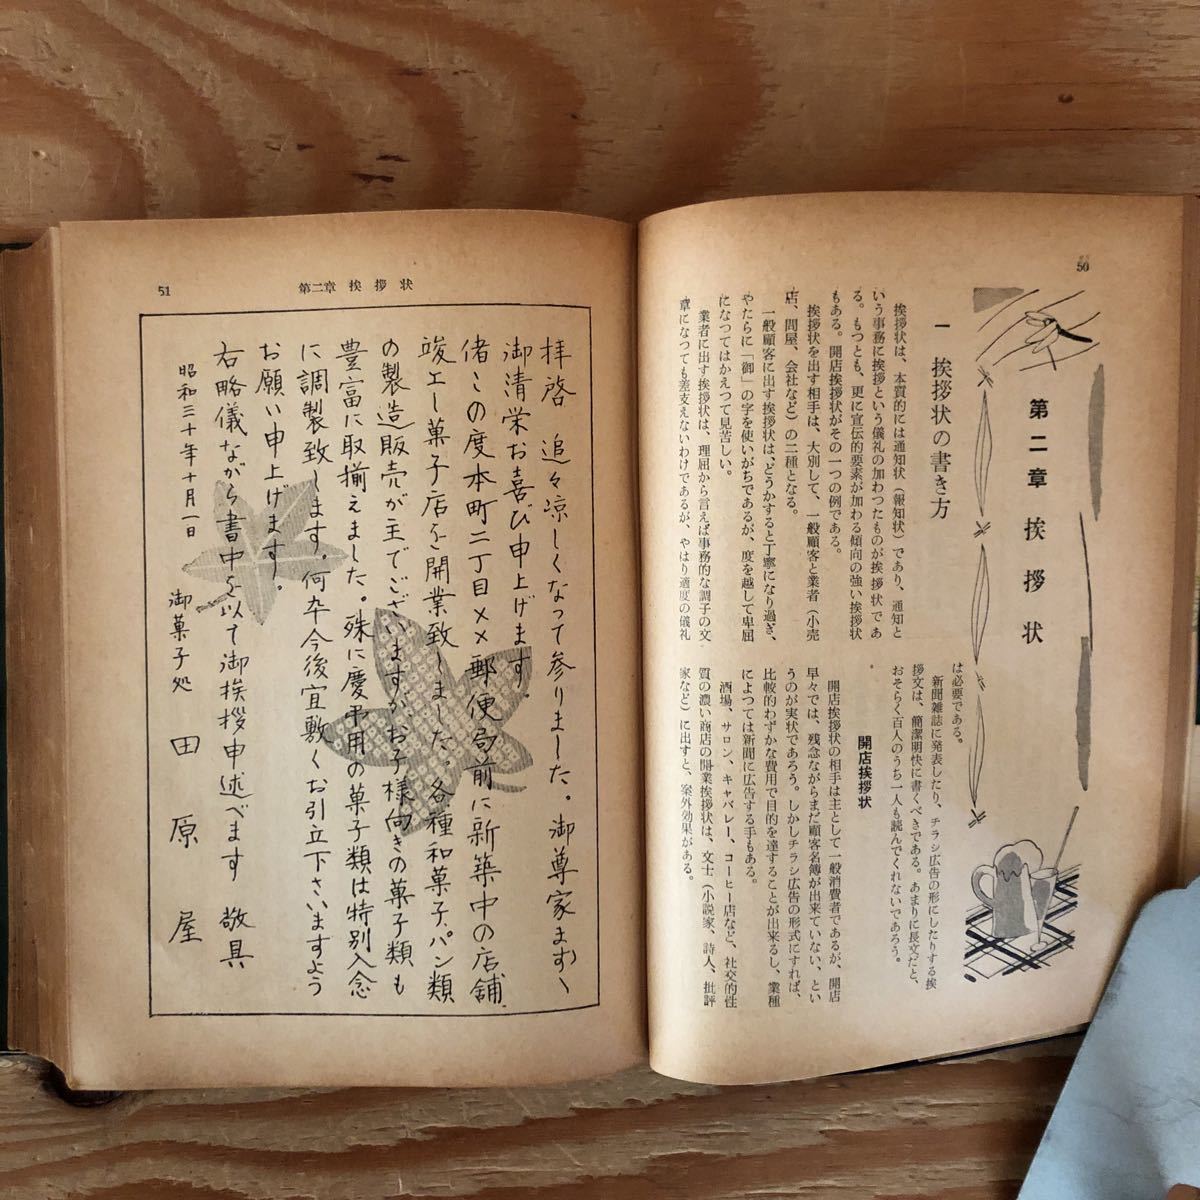 50
第二章 挨拶状
一 挨拶状の書き方
挨拶状は、本質的には通知状（報知状）であり、通知と
いう事務に挨拶という儀礼の加わつたものが挨拶状であ
る。もつとも、更に宣伝的要素が加わる傾向の強い挨拶状
もある。開店挨拶状がその一つの例である。
挨拶状を出す相手は、大別して、一般顧客と業者（小売
店、問屋、会社など）の二種となる。
一般顧客に出す挨拶状は、どうかすると丁寧になり過ぎ、
やたらに「御」の字を使いがちであるが、度を越して卑屈
になつてはかえつて見苦しい。
業者に出す挨拶状は、理屈から言えば事務的な調子の文
章になつても差支えないわけであるが、やはり適度の儀礼
は必要である。
新聞雑誌に発表したり、チラシ広告の形にしたりする挨
拶文は、簡潔明快に書くべきである。あまりに長文だと、
おそらく百人のうち一人も読んでくれないであろう。
開店挨拶状
開店挨拶状の相手は主として一般消費者であるが、開店
早々では、残念ながらまだ顧客名簿が出来ていない、とい
うのが実状であろう。しかしチラシ広告の形式にすれば、
比較的わずかな費用で目的を達することが出来るし、業種
によつては新聞に広告する手もある。
酒場、サロン、キャバレー、コーヒー店など、社交的性
質の濃い商店の開業挨拶状は、文士（小説家、詩人、批評
家など）に出すと、案外効果がある。
51
第二章 挨拶状
拝啓 追々涼しくなって参りました。御尊家ますく
御清栄お喜び申上げます。
偖この度本町二丁目××郵便局前に新築中の店舗
竣工し菓子店を開業致しました。各種和菓子、パン類
の製造販売が主でございますが、お子様向きの菓子類も
豊富に取揃えました。殊に慶弔用の菓子類は特別入念
に調製致します。何卒今後宜敷くお引立下さいますよう
お願い申上げます。
右略儀ながら書中を以て御挨拶申述べます 敬具
昭和三十年十月一日
御菓子処 田原屋